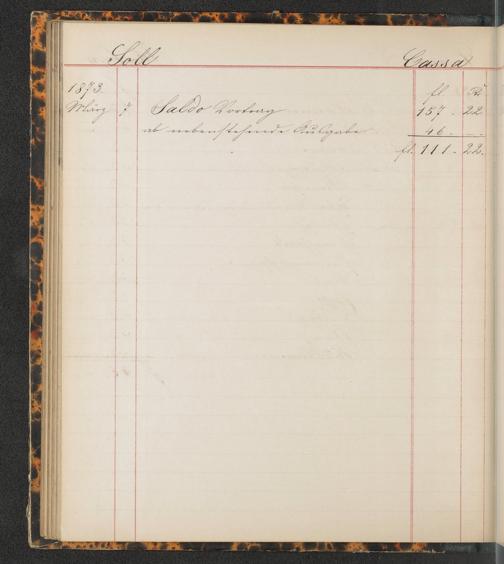 Soll Cassa
1873. fl. xr
März 7 Saldo Vortrag 157 . 22
ab nebenstehende Ausgabe 46 . —
fl. 111 . 22.